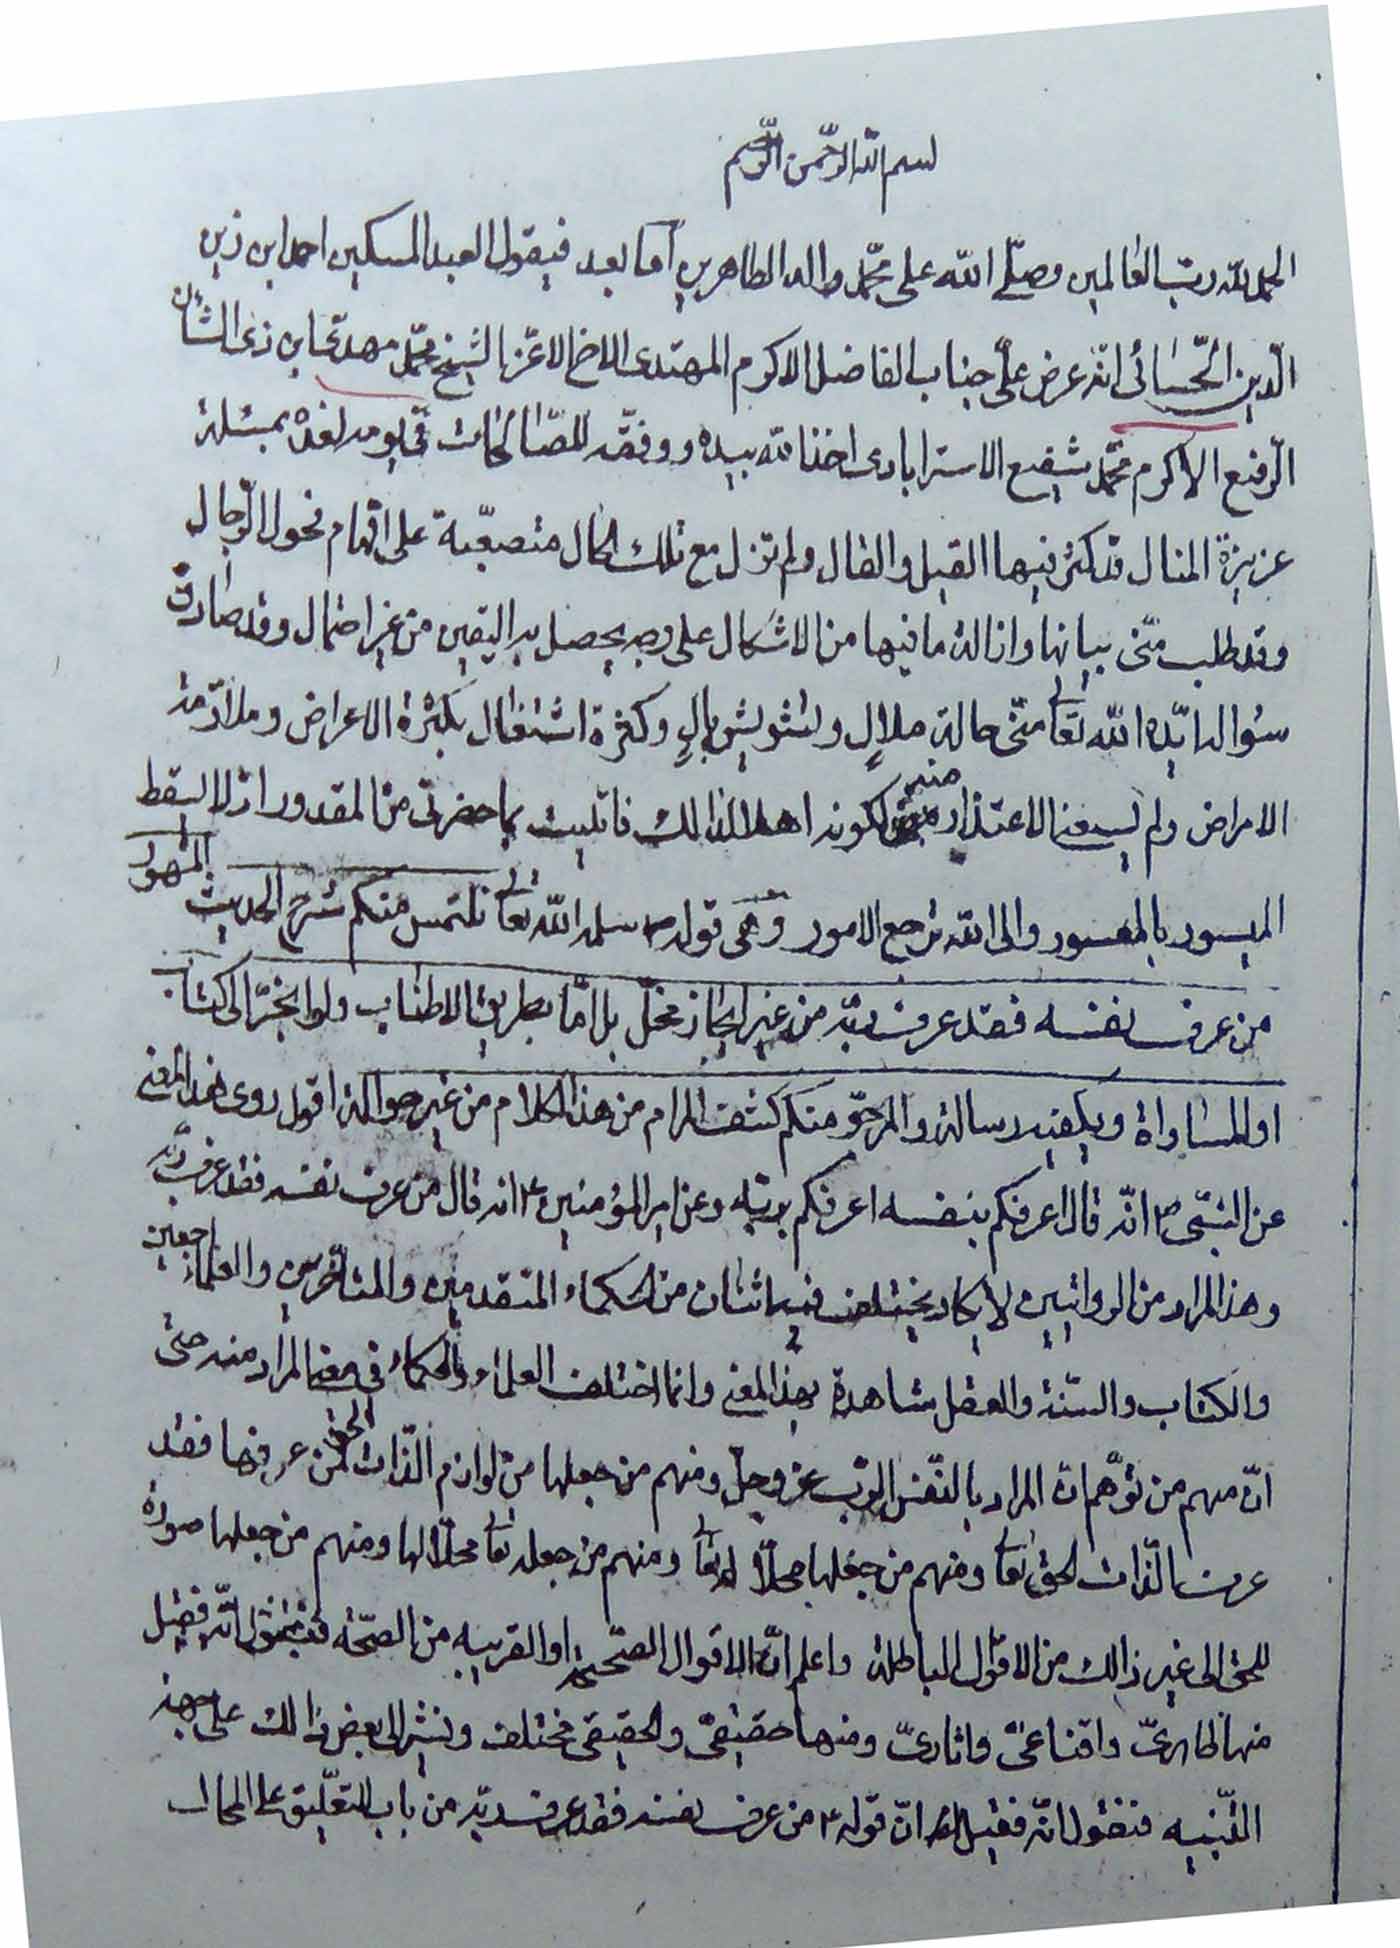 بسم الله الرحمن الرحيم
الحمد لله رب العالمين وصلى الله على محمد واله الطاهرين اما بعد فيقول العبد المسكين احمد ابن زين
الدين الاحسائى انه عرض علىّ جناب الفاضل الاكرم المهتدى الاخ الاعز الشيخ محمد مهدى ابن ذى الشأن
الرفيع الاكرم محمد شفيع الاسترابادى اخذ الله بيده ووفقه للصالحات فى يومه لغده بمسئلة
عزيزة المنال قد كثر فيها القيل والقال ولم تزل مع تلك الحال متصعّبة على افهام فحول الرجال
وقد طلب منّى بيانها وازالة ما فيها من الاشكال على وجه يحصل به اليقين من غير احتمال وقد صادف
سؤاله ايده الله تعالى منّى حالة ملالٍ وتشويش بالٍ وكثرة اشتغال بكثرة الاعراض وملازمة
الامراض ولم يسعنى الاعتذار منه لكونه اهلا لذلك فاتيت بما حضرنى من المقدور اذ لا يسقط
الميسور بالمعسور والى الله ترجع الامور وهى قوله سلمه الله تعالى نلتمس منكم شرح الحديث المشهور
من عرف نفسه فقد عرف ربه من غير ايجاز مخلّ بل امّا بطريق الاطناب ولو انجرّ الى كتاب
او المساواة ويكفيه رسالة والمرجوّ منكم كشف المرام من هذا الكلام من غير حوالة اقول روى هذا المعنى
عن النبىّ ص انّه قال اعرفكم بنفسه اعرفكم بربه وعن امير المؤمنين ع انه قال من عرف نفسه فقد عرف ربّه
وهذا المراد من الروايتين لا يكاد يختلف فيه اثنان من الحكماء المتقدمين والمتأخرين والعلماء اجمعين
والكتاب والسّنة والعقل شاهدة بهذا المعنى وانما اختلف العلماء والحكماء فى معنى المراد منه حتى
انّ منهم من توهّم انّ المراد بالنّفس الربّ عز وجلّ ومنهم من جعلها من لوازم الذّات الحق فمن عرفها فقد
عرف الذّات الحق تعالى ومنهم من جعلها محلّا له تعالى ومنهم من جعله تعالى محلّا لها ومنهم من جعلها صورة
للحق الى غير ذلك من الاقوال الباطلة واعلم انّ الاقوال الصّحيحة او القريبه من الصحّة فنقول انّه فقيل
منها ظاهرىّ واقناعىّ واثارىّ ومنها حقيقىّ والحقيقى مختلف ونشير الى بعض ذلك على جهة
التّنبيه فنقول انّه فقيل انّ قوله ع من عرف نفسه فقد عرف ربّه من باب التعليق على المحال